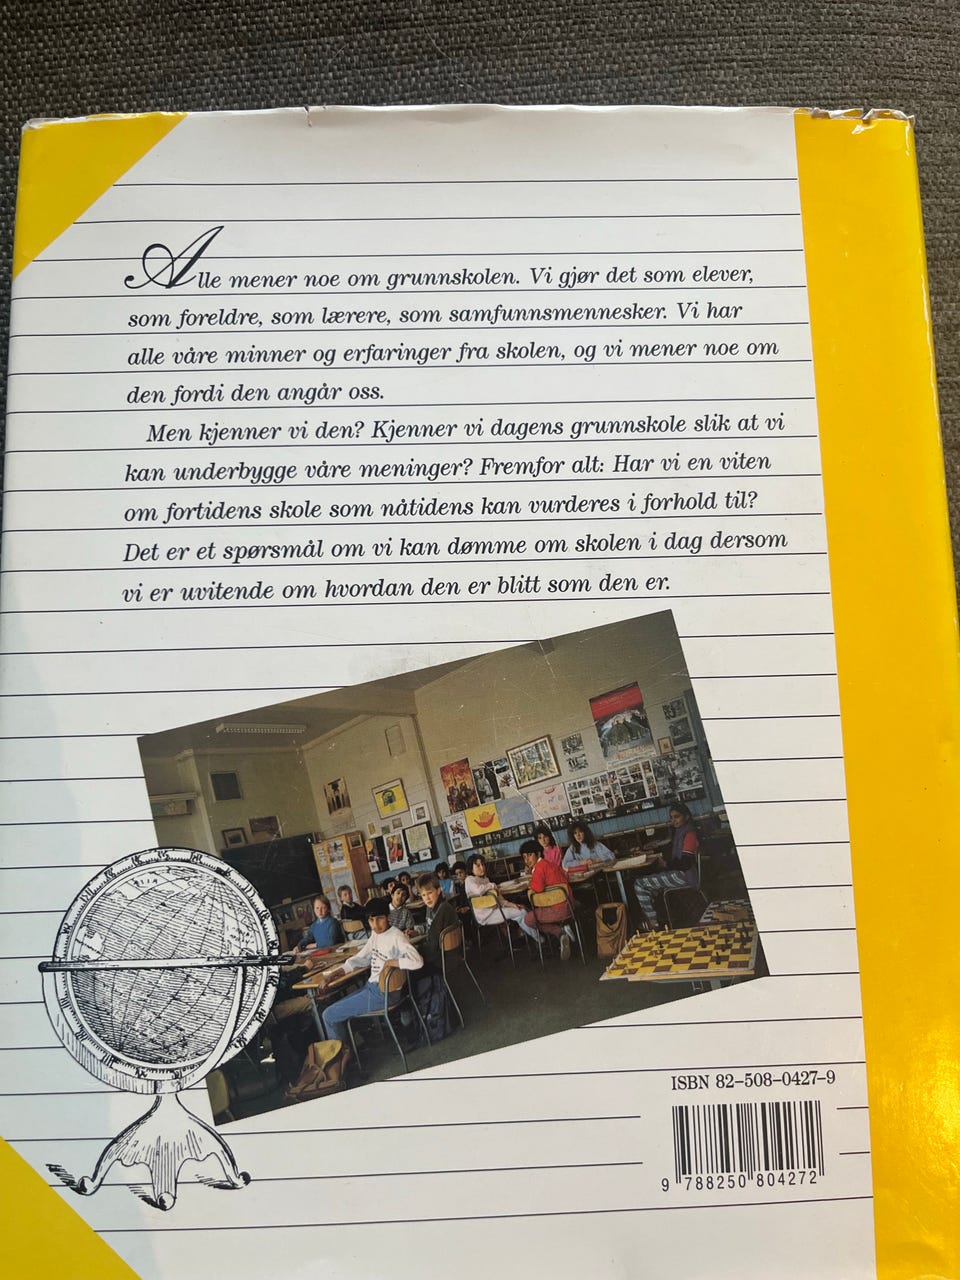 Alle mener noe om grunnskolen. Vi gjør det som elever,
som foreldre, som lærere, som samfunnsmennesker. Vi har
alle våre minner og erfaringer fra skolen, og vi mener noe om
den fordi den angår oss.
Men kjenner vi den? Kjenner vi dagens grunnskole slik at vi
kan underbygge våre meninger? Fremfor alt: Har vi en viten
om fortidens skole som nåtidens kan vurderes i forhold til?
Det er et spørsmål om vi kan dømme om skolen i dag dersom
vi er uvitende om hvordan den er blitt som den er.
ISBN 82-508-0427-9
9 788250 804272